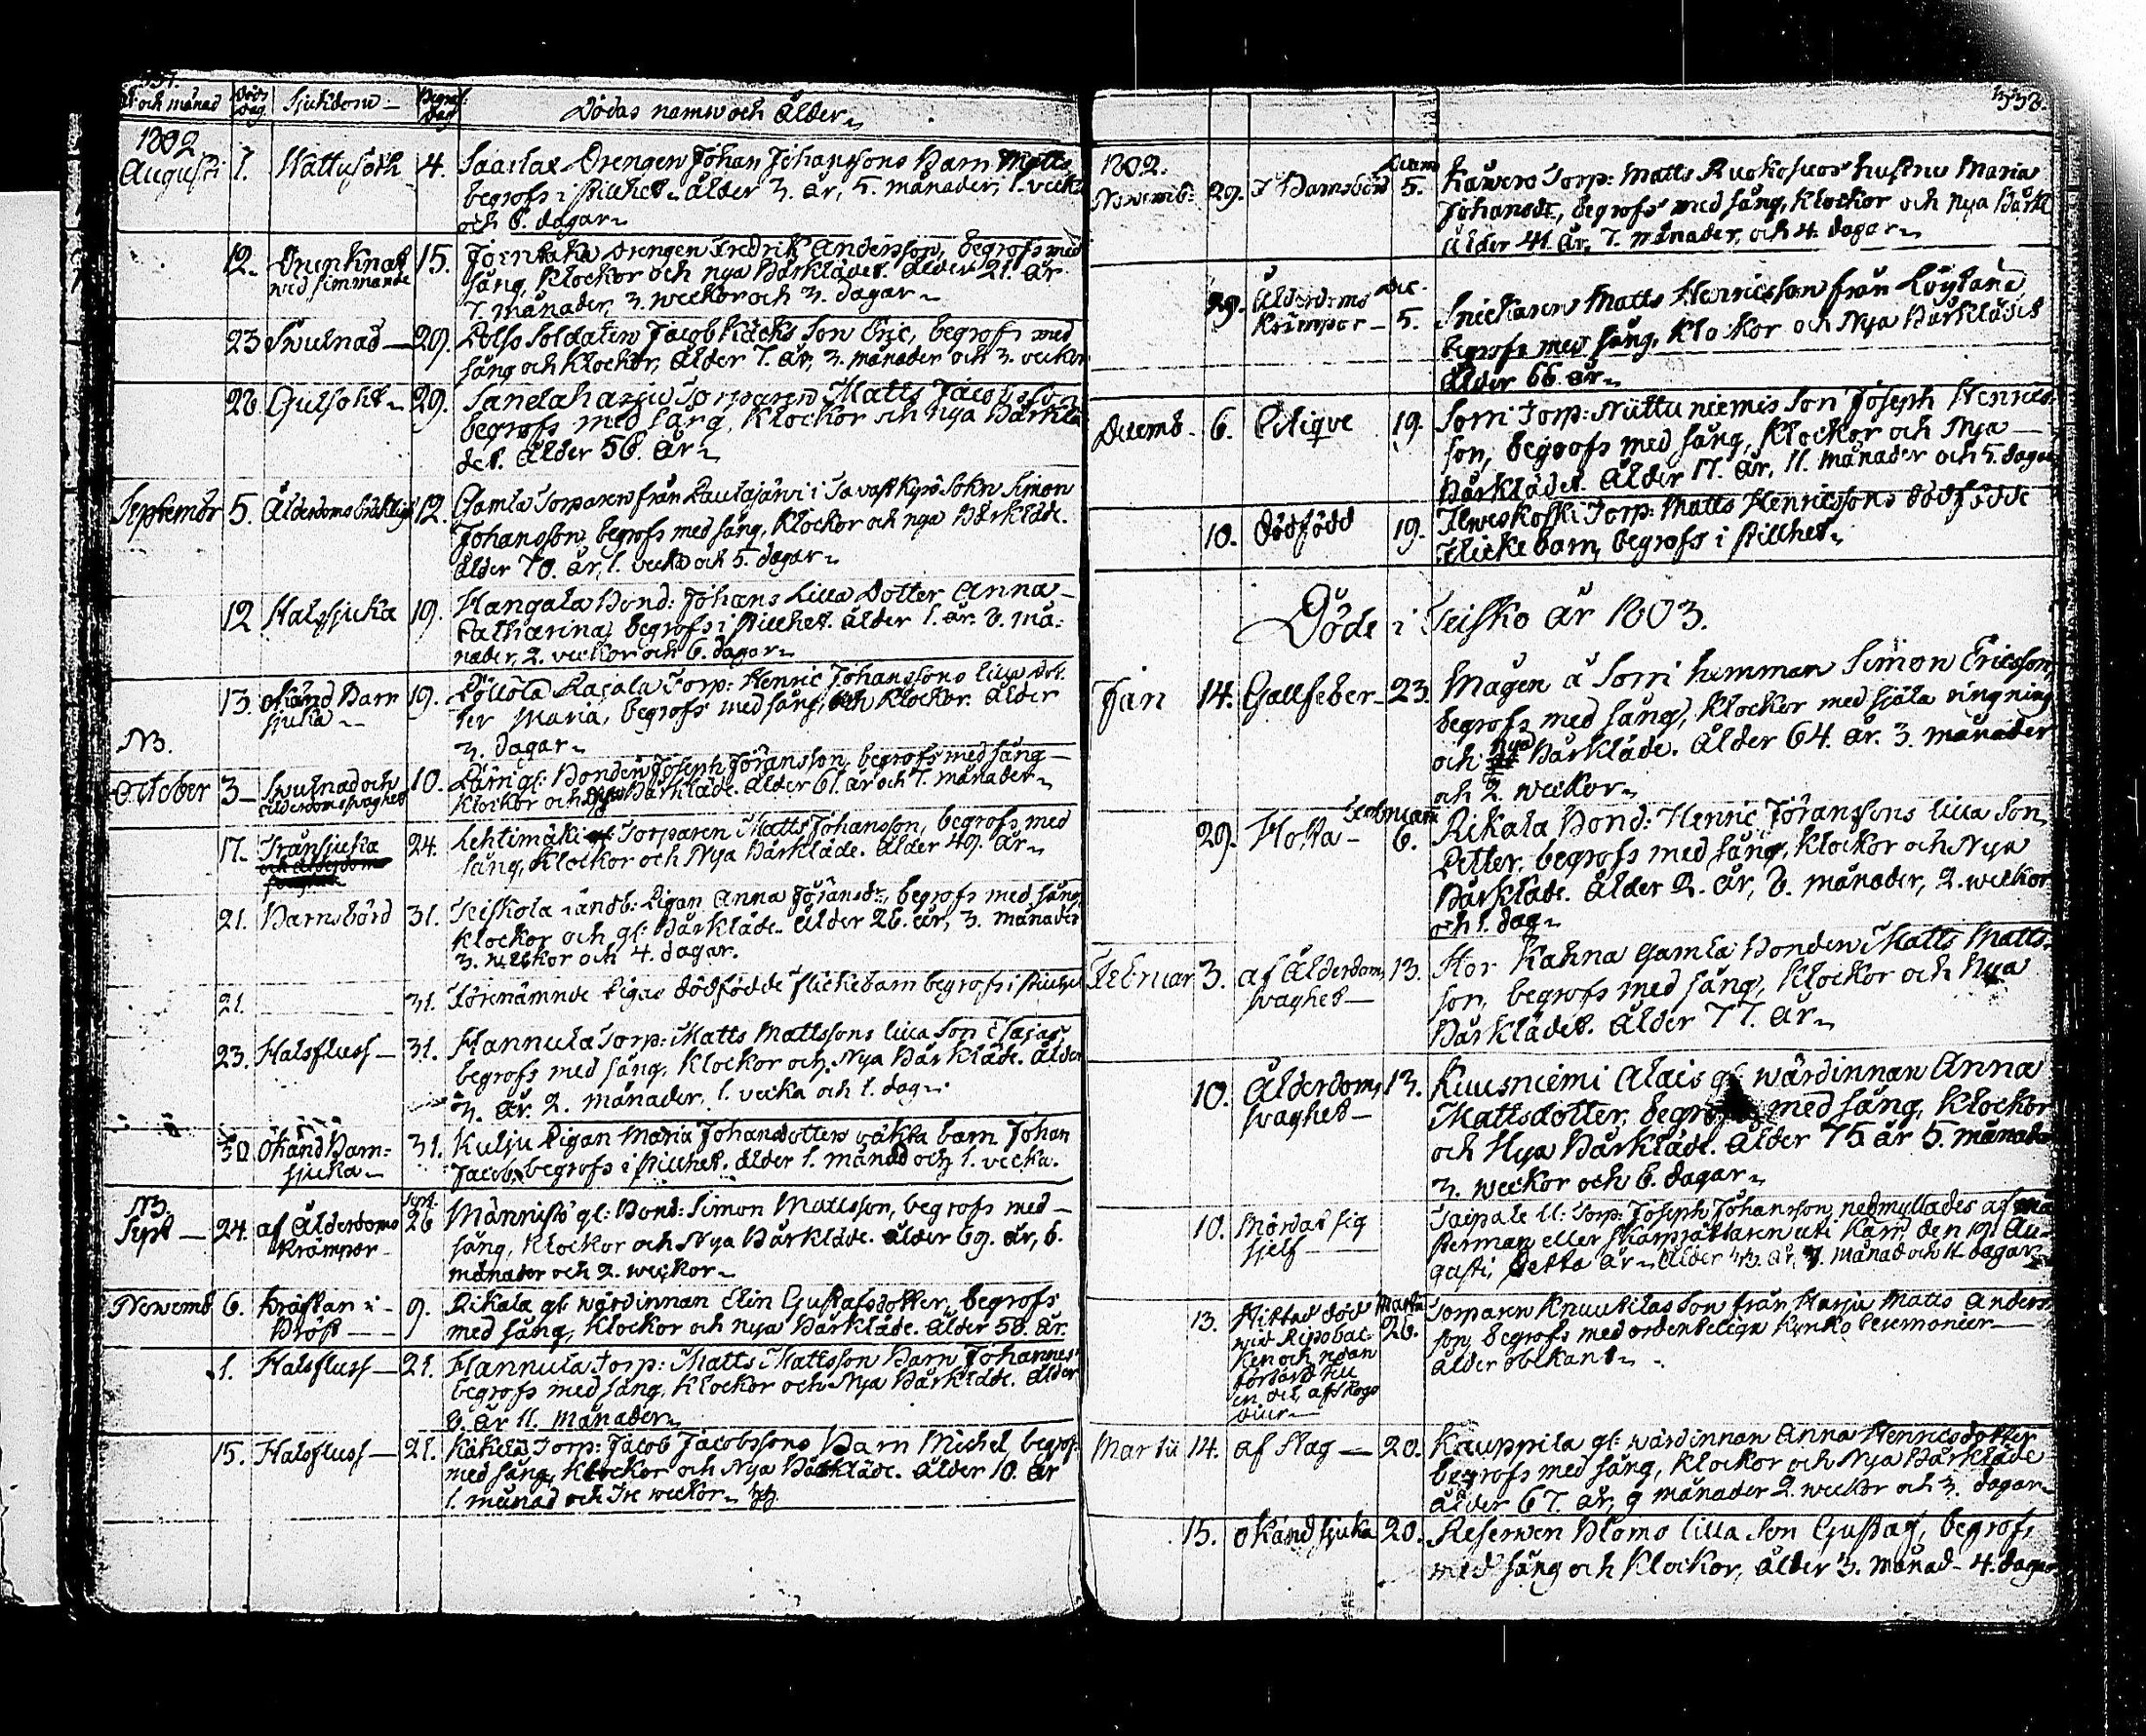 337.
År och månad Döds dag. Sjukdom Begraf: dag Dödas namn och Ålder
1802
Augusti 1. Wattusoth 4. Saarlax Drengen Johan Johanssons Barn Matts,
begrofs i stillhet. ålder 3. år, 5. månader, 1. vecka
och 6. dagar
12. Drunknat 15. Drengen Fredrik Andersson, begrofs med
wid simmande sång, Klockor och nya Bårklädet. ålder 21. år
7. månader, 3. weckor och 3. dagar
23 Svulnad 29. Soldaten Jacob Käcks Son Eric, begrofs med
sång och Klockor, ålder 7. år, 3. månader och 3. veckor
28 Gulsoht 29. Torparen Matts Jacobsson
begrofs med sång, Klockor och nya Bårklä
det. ålder 58. år
Septembr 5. Ålderdoms bräklight 12. Gamla Torparen från Paulajärvi i Tavastkyro Sokn Simon
Johansson, begrofs med sång, Klockor och nya Bårkläde.
ålder 70. år, 1. vecka och 5. dagar
12 Halssjuka 19. Hangala Bond: Johans Lilla Dotter Anna
Catharina, begrofs i stillhet. ålder 1. år. 8. må-
nader, 2. veckor och 6. dagar
13. okänd Barn 19. Pöllölä Torp: Henric Johanssons lilla dot
sjuka ter Maria, begrofs med sång, och Klockor. ålder
3. dagar
NB.
October 3 Svulnad och 10. gl: Bonden Joseph Jöransson, begrofs med sång
ålderdomsswaghet Klockor och Nya Bårkläde. ålder 61. år och 7. månader
17. Trånsjuka 24. Lehtimäki Torparen Matts Johansson, begrofs med
sång, Klockor och Nya Bårkläde. ålder 49. år
21. Barnsbörd 31. Teiskola Pigan Anna Jöransdr, begrofs med sång
Klockor och gl: Bårkläde. ålder 26. år, 3. månader
3. weckor och 4. dagar.
21. 31. Förenämnde Pigas dödfödde flickebarn begrofs i stillhet
23. Halsfluss 31. Hannula Torp: Matts Mattssons lilla Son Esajas,
begrofs med sång, Klockor och Nya Bårkläde. ålder
3. år. 2. månader, 1. vecka och 1. dag
30 okänd Barn- 31. Kulju Pigan Maria Johansdotters oäkta barn Johan
sjuka Jacob, begrofs i stillhet. ålder 1. månad och 1. vecka.
NB. Sept.
Sept 24. af Ålderdoms 26 Männistö gl: Bond: Simon Mattsson, begrofs med
krämpor sång, Klockor och Nya Bårkläde. ålder 69. år, 6.
månader och 2. weckor
Novemb 6. Kräftan i 9. Rikala gl: wärdinnan Elin Gustafsdotter, begrofs
Bröst med sång, Klockor och nya Bårkläde. ålder 58. år.
1. Halsfluss 21. Hannula Torp: Matts Mattsson Barn, Johannes
begrofs med sång, Klockor och Nya Bårkläde. ålder
8. år 11. månader
15. Halsfluss 21. Käkelä Torp: Jacob Jacobssons Barn Michel, begrofs
med sång, Klockor och Nya Bårkläde. ålder 10. år
1. månad och tre weckor
338.
1802. Decemb
Novemb: 29. I Barnsbörd 5. Torp: Matts Ruokosuos hustru Maria
Johansdr, begrofs med sång, Klockor och nya Bårkl
ålder 41. år, 7. månader, och 4. dagar
29. Ålderdoms Dec.
krämpor 5. Snickaren Matts Henricsson från Löytänä
begrofs med sång, Klockor och Nya Bårklädet
ålder 66 år
Decemb 6. Colique 19. Sorri Torp: Niittyniemis Son Joseph Henrics-
son, begrofs med sång, Klockor och Nya
Bårklädet. ålder 17. år, 11. månader och 5. dagar
10. dödfödd 19. Ilweskoski Torp: Matts Henricssons dödfödde
Flickebarn, begrofs i stillhet
Döde i Teisko år 1803.
Jan 14. Gallfeber 23. Mågen å Sorri hemman Simon Ericsson,
begrofs med sång, Klockor med själa ringning
och nya Bårkläde. ålder 64. år. 3. månader
och 2. weckor
Februarii
29. Hosta 6. Rikala Bond: Henric Jöranssons lilla Son
Petter, begrofs med sång, Klockor och Nya
Bårkläde. ålder 2. år, 8. månader, 2. weckor
och 1. dag
Februar 3. af Ålderdoms 13. Stor Kahna Gamla Bonden Matts Matts-
svaghet son, begrofs med sång, Klockor och Nya
Bårklädet. ålder 77. år
10. Ålderdoms 13. Kuusniemi Alais gl: wärdinnan Anna
svaghet Mattsdotter, begrofs med sång, Klockor
och Nya Bårkläde. ålder 75 år 5. månader
3. weckor och 6. dagar
10. Mördat sig Taipale Torp: Joseph Johansson, nedmyllades af mä
sjelf sterman eller skarprättaren uti kärr, den 19. Au-
gusti, detta år
13. Hittad död Martii Torparen Knuutilas Son från Harju Matts Anders
wid 26. son, begrofs med ordenteliga Kyrko Ceremonier
ålder obekant
af skogs
diur
Martii 14. af slag 20. Kauppila gl: wärdinnan Anna Henricsdotter
begrofs med sång, Klockor och Nya Bårkläde
ålder 67. år, 9 månader 2. weckor och 3. dagar
15. okänd sjuka 20. Reserwen Bloms lilla Son Gustaf, begrofs
med sång och Klockor, ålder 3. månad 4. dagar